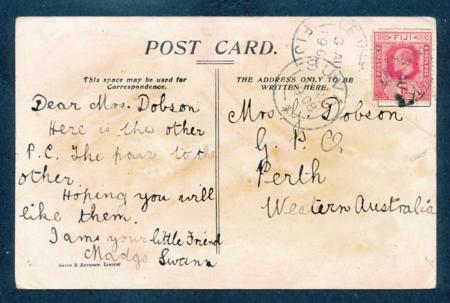 POST CARD.
This space may be used for
Correspondence.
Dear Mrs. Dobson
Here is the other
P.C. The pair to the
other.
Hoping you will
like them.
I am your little Friend
Madge Swann
THE ADDRESS ONLY TO BE
WRITTEN HERE.
Mrs. Dobson
G. P. O.
Perth
Western Australia
FIJI
FIJI
POSTAGE